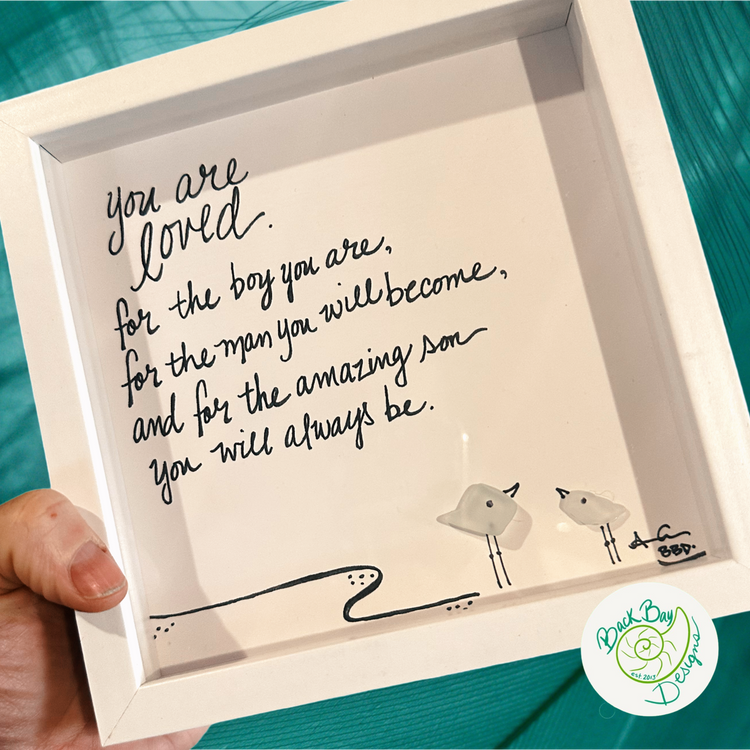 you are
loved.
for the boy you are,
for the man you will become,
and for the amazing son
you will always be.
BBD.
Back Bay
Designs
est 2013